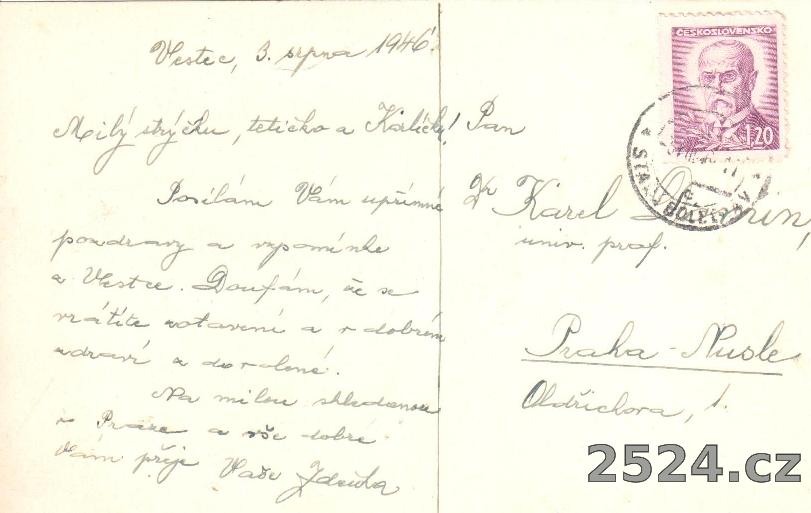 Vestec, 3. srpna 1946.
Milý strýčku, tetičko a Karlíčku!
Posílám Vám upřímné
pozdravy a vzpomínke
z Vestce. Doufám, že se
vrátíte zotavení a v dobrém
zdraví z dovolené.
Na milou shledanou
v Praze a vše dobré
Vám přeje Vaše Zdeňka
Pan
Dr Karel Domin,
univ. prof.
Praha - Nusle
Oldřichova, 1.
ČESKOSLOVENSKO
1.20
2524.cz